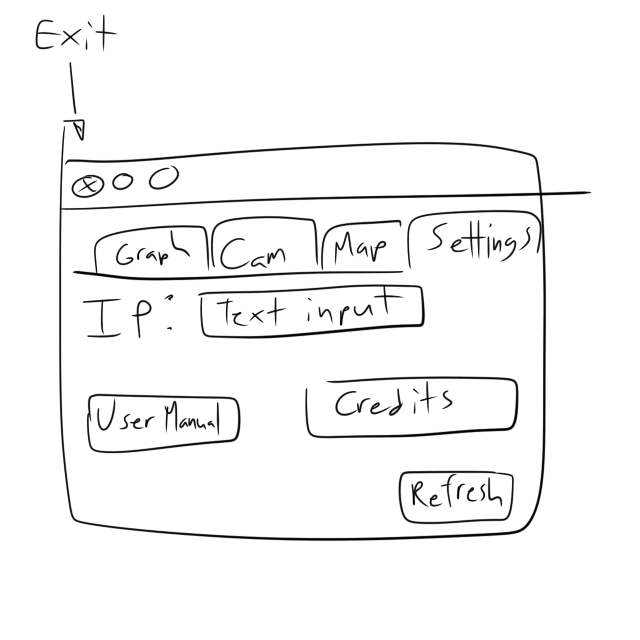 Exit
Graph Cam Map Settings
IP: Text input
User Manual Credits
Refresh